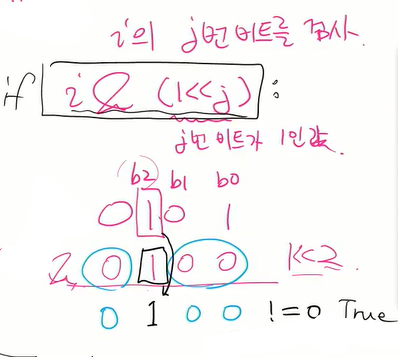 i의 j번 비트를 검사.
if i & (1<<j) :
j번 비트가 1인 값.
b2 b1 b0
0 1 0 1
& 0 1 0 0 1<<2
0 1 0 0 !=0 True